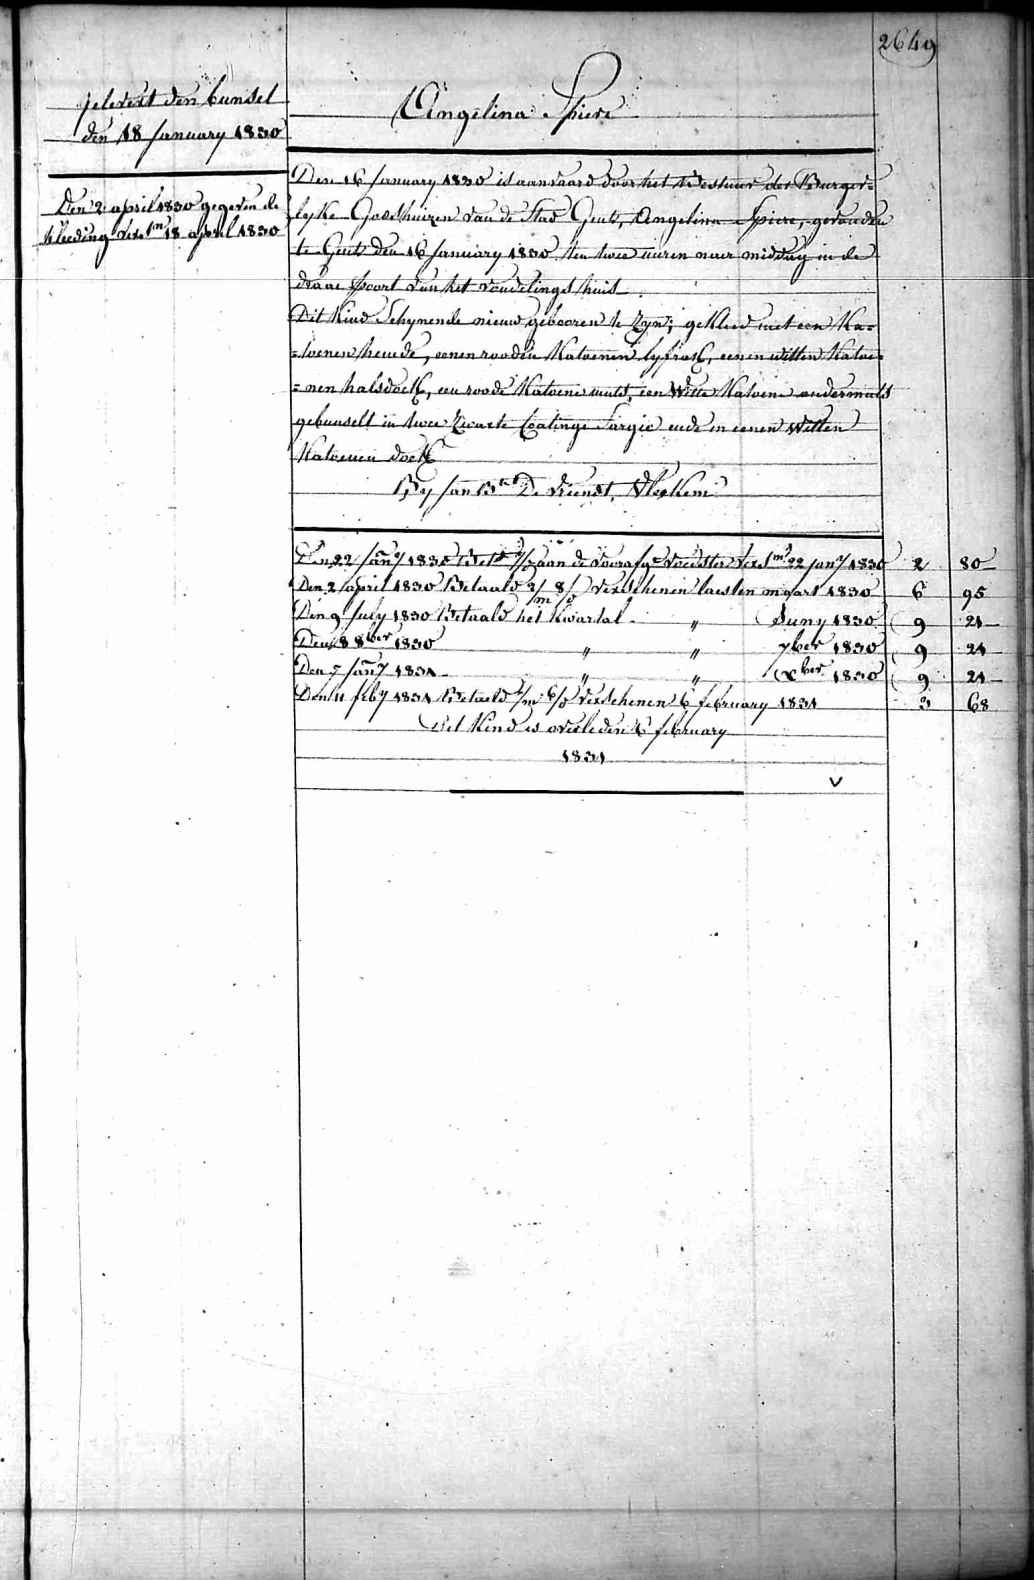 2649
gelevert den bunsel
den 18 January 1830
Angelina Spiere
Den 2 april 1830 gegeven de
kleeding vers.m 18 april 1830
Den 16 January 1830 is aanvaard door het Bestuur der Burger=
lyke Godshuizen van de Stad Gent, Angelina Spiere, gevonden
te Gent den 16 January 1830 ten twee uuren naer middag in de
draai poort van het vondelings huis
Dit Kind Schynende nieuw gebooren te Zyn, gekleed met een Ka=
=toenen hemde, eenen rooden Katoenen lyfrok, eenen witten Katoe=
=nen halsdoek, een roode Katoene muts, een Witte Katoene ondermuts
gebunselt in twee Zwarte Coatings Sargie ende in eenen Witten
Katoenen doek
By Jan Bte De Vriendt,
Den 22 Jany 1830 Bet aan de voorafge voedster vers.m 22 jany 1830 2 80
Den 2 april 1830 Betaald 2/m 8/d verschenen laesten maart 1830 6 95
Den 9 July 1830 Betaald het Kwartal " Juny 1830 9 21
Den 8 8ber 1830 " " 7ber 1830 9 21
Den 7 Jany 1831 " " Xber 1830 9 21
Den 11 feby 1831 Betaald 1/m 6/d verschenen 6 february 1831 3 68
Het Kind is overleden 6 february
1831